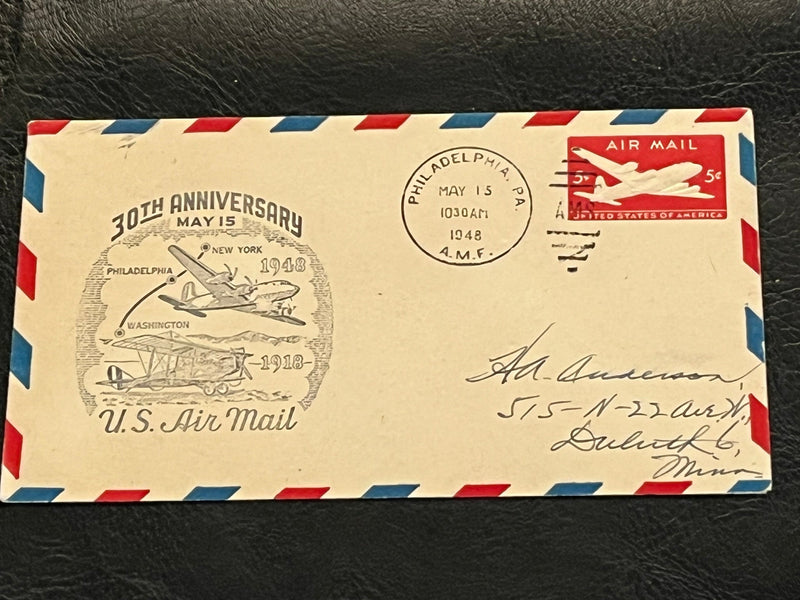 30TH ANNIVERSARY
MAY 15
NEW YORK
1948
PHILADELPHIA
WASHINGTON
-1918-
U.S. Air Mail
PHILADELPHIA, PA.
MAY 15
1030 AM
1948
A.M.F.
AIR MAIL
5¢ 5¢
UNITED STATES OF AMERICA
AMS
H.A. Anderson,
515-N-22 Ave. W.,
Duluth 6,
Minn